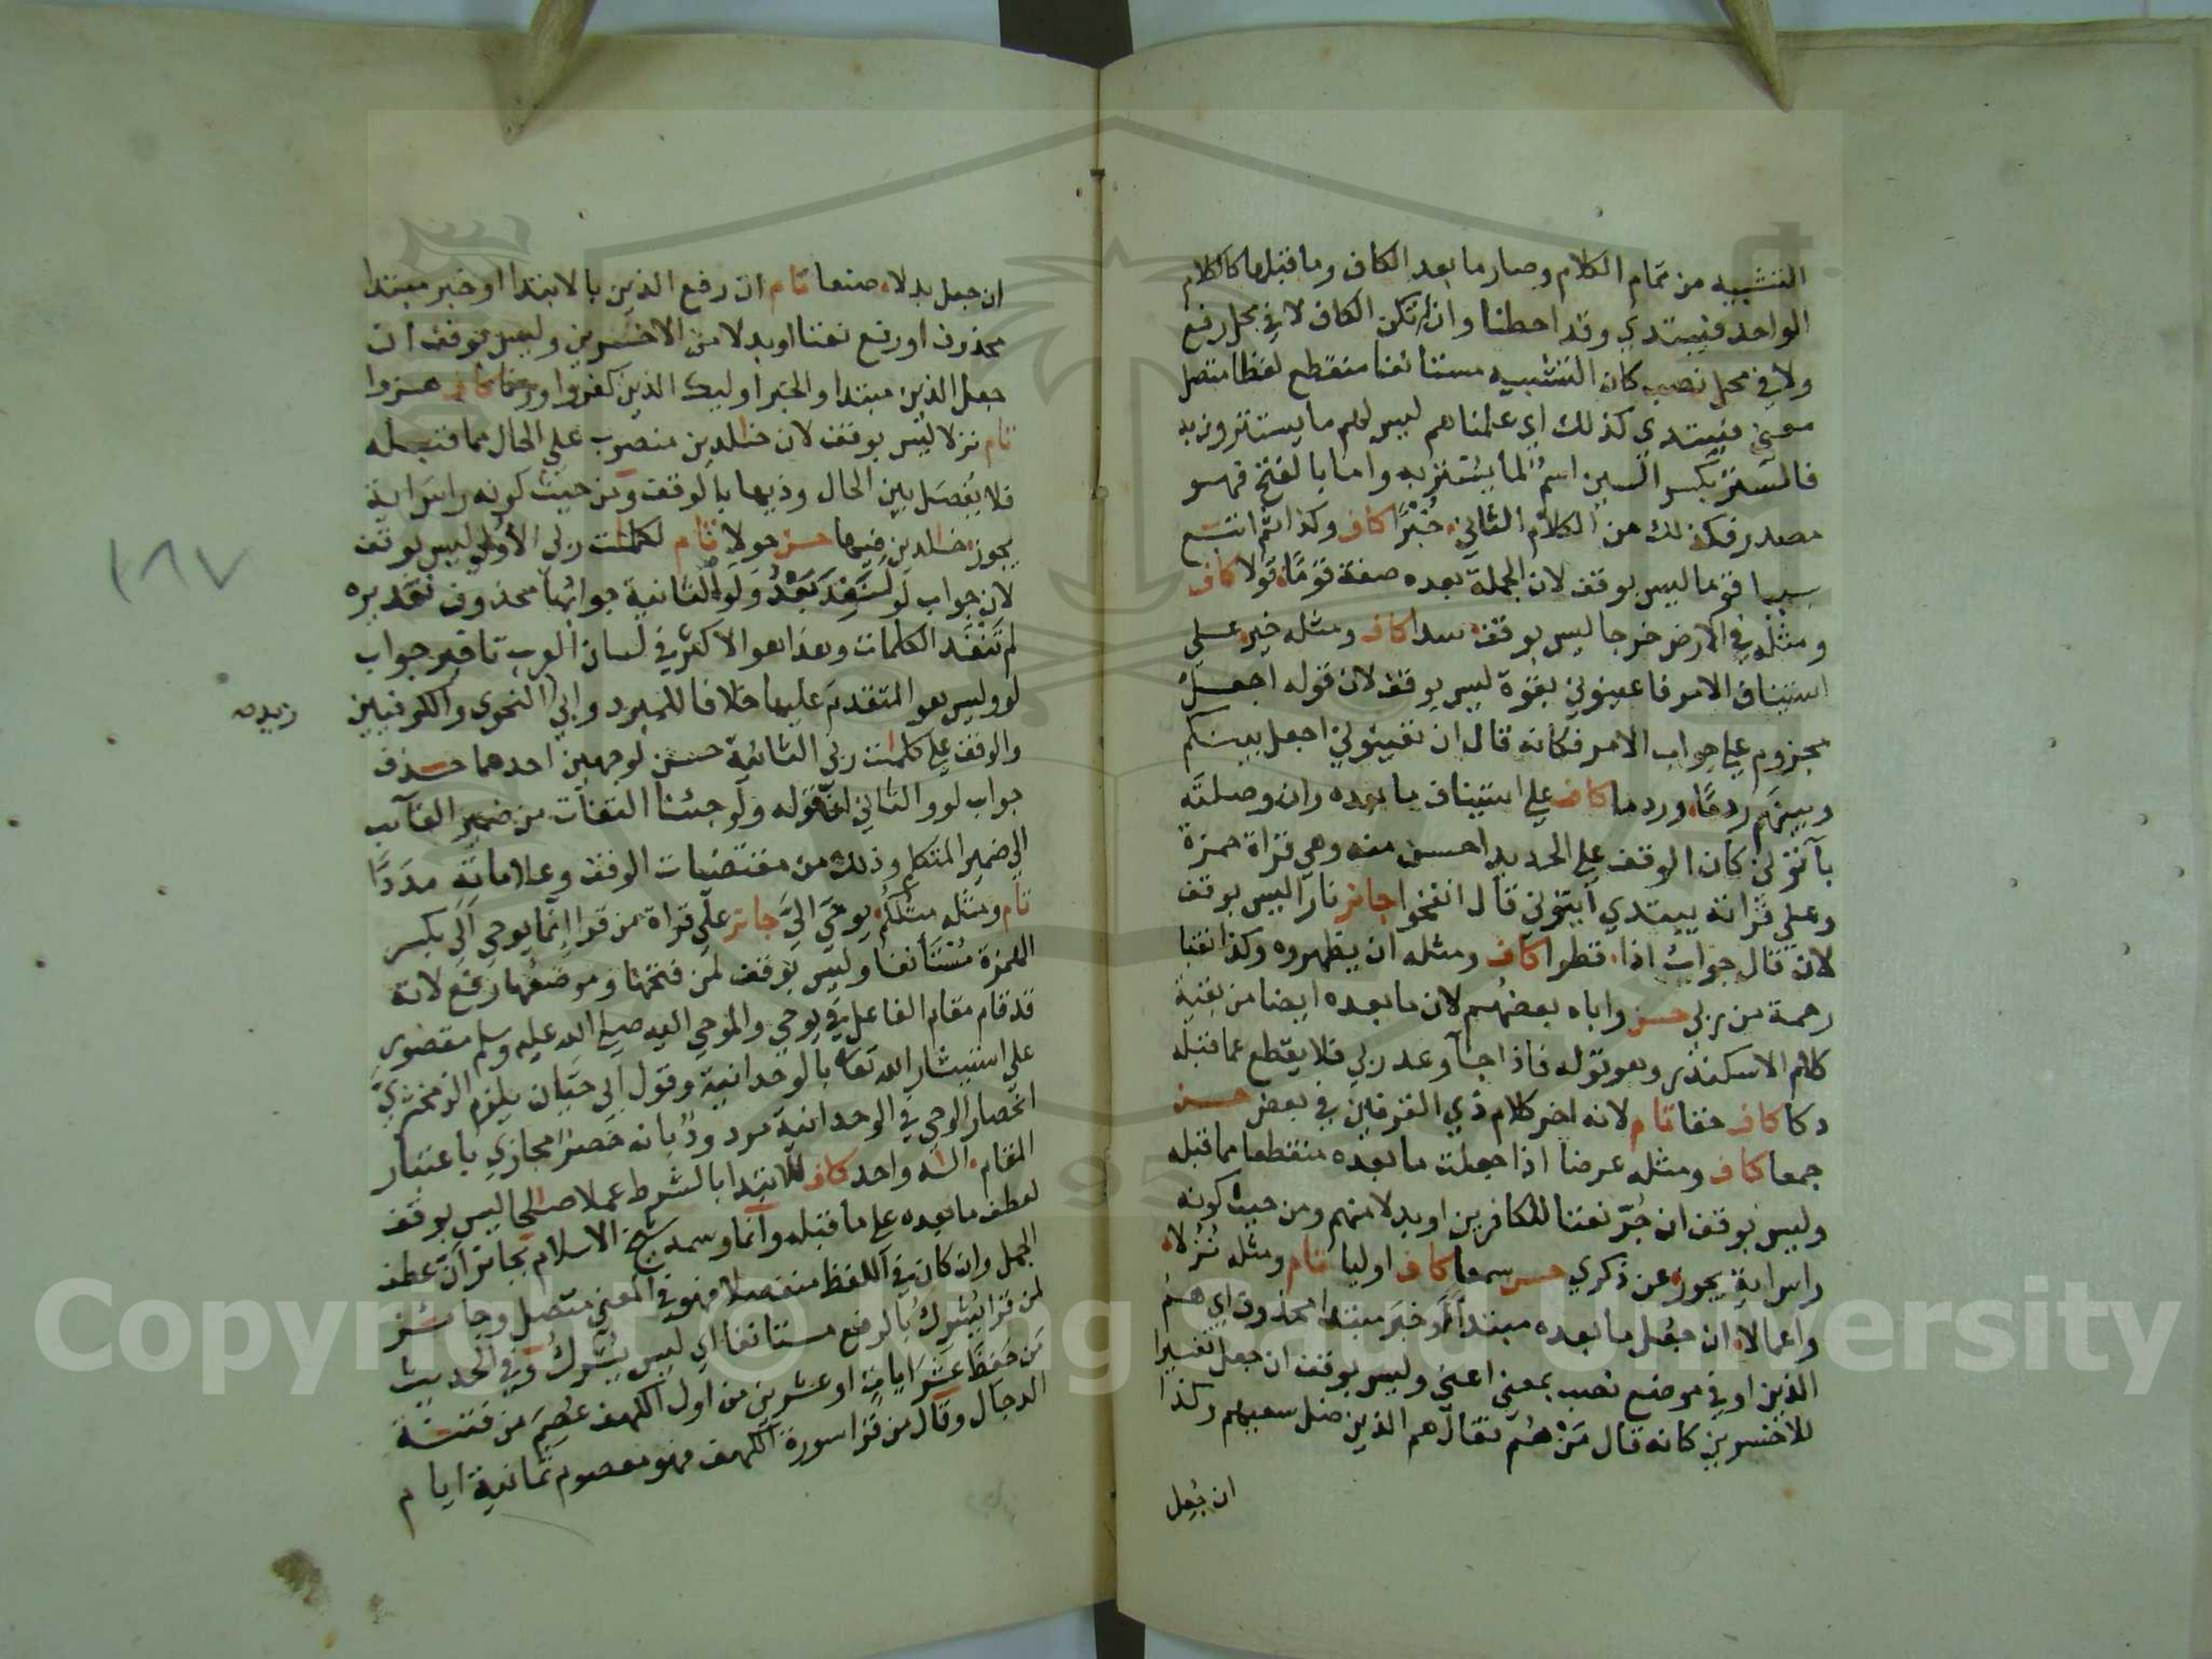 التشبيه من تمام الكلام وصار ما بعد الكاف وما قبلها كالكلام
الواحد فيبتدي وقد احطنا وان لم تكن الكاف لا في محل رفع
ولا في محل نصب كان التشبيه مستانفا منقطع لفظا متصل
معنى فيبتدي كذلك اي علمناهم ليس لهم ما يستترون به
فالستر بكسر السين اسم لما يستتر به واما بالفتح فهو
مصدر فكذلك من الكلام الثاني خبرا كاف وكذا ثم اتبع
سببا قوما ليس بوقف لان الجملة بعده صفة قوما قولا كاف
ومثله في الارض خرجا ليس بوقف سدا كاف ومثله خير على
استيناف الامر فاعينوني بقوة ليس بوقف لان قوله اجعل
مجزوم على جواب الامر فكانه قال ان تعينوني اجعل بينكم
وبينهم ردما وردما كاف على استيناف ما بعده وان وصلته
بآتوني كان الوقف على الحديد احسن منه وهي قراة حمزة
وعلى قراته يبتدي آيتوني قال انفخوا جائز نارا ليس بوقف
لان قال جواب اذا قطرا كاف ومثله ان يظهروه وكذا نقبا
رحمة من ربي حسن واباه بعضهم لان ما بعده ايضا من بقية
كلام الاسكندر وهو قوله فاذا جآ وعد ربي فلا يقطع عما قبله
دكا كاف حقا تام لانه اخر كلام ذي القرنين في بعض حسن
جمعا كاف ومثله عرضا اذا جعلت ما بعده منقطعا مما قبله
وليس بوقف ان جر نعتا للكافرين او بدلا منهم ومن حيث كونه
راس اية يجوز عن ذكري حسن سمعا كاف اوليا تام ومثله نزلا
واعمالا ان جعل ما بعده مبتدا او خبر مبتدا محذوف اي هم
الذين او في موضع نصب بمعنى اعني وليس بوقف ان جعل تفسيرا
للاخسرين كانه قال من هم فقال هم الذين ضل سعيهم وكذا
ان جعل
ان جعل بدلا صنعا تام ان رفع الذين بالابتدا او خبر مبتدا
محذوف او رفع نعتا او بدلا من الاخسرين وليس بوقف ان
جعل الذين مبتدا والخبر اوليك الذين كفروا وزنا كاف هزوا
تام نزلا ليس بوقف لان خالدين منصوب على الحال مما قبله
فلا يفصل بين الحال وذيها بالوقف ومن حيث كونه راس اية
يجوز خالدين فيها حسن حولا تام لكلمات ربي الاولى ليس بوقف
لان جواب لو لنفد بعد ولو الثانية جوابها محذوف تقديره
لم تنفد الكلمات وهذا هو الاكثر في لسان العرب تاخير جواب
لو وليس هو المتقدم عليها خلافا للمبرد وابي النحوي والكوفيين
زيد صح
والوقف على كلمات ربي الثانية حسن لوجهين احدهما حذف
جواب لو والثاني ان قوله ولو جئنا التفات من ضمير الغآيب
الى ضمير المتكلم وذلك من مقتضيات الوقف وعلاماته مددا
تام ومثله مثلكم يوحى الي جائز على قراة من قرا انما يوحى الي بكسر
الهمزة مستانفا وليس بوقف لمن فتحها وموضعها رفع لانه
قد قام مقام الفاعل في يوحى والموحى اليه صلى الله عليه وسلم مقصور
على استيثار الله تعا بالوحدانية وقول ابي حيان يلزم الزمخشري
انحصار الوحي في الوحدانية مردود بانه حصر مجازي باعتبار
المقام اله واحد كاف للابتدا بالشرط عملا صالحا ليس بوقف
لعطف ما بعده على ما قبله وانما وسمه شيخ الاسلام بجائز ان عطف
الجمل وان كان في اللفظ منفصلا فهو في المعنى متصل وجائز
لمن قرا يشرك بالرفع مستانفا اي ليس يشرك وفي الحديث
من حفظ عشر ايات او عشرين من اول الكهف عصم من فتنة
الدجال وقال من قرا سورة الكهف فهو معصوم ثمانية ايام
١٨٧
Copyright © King Saud University